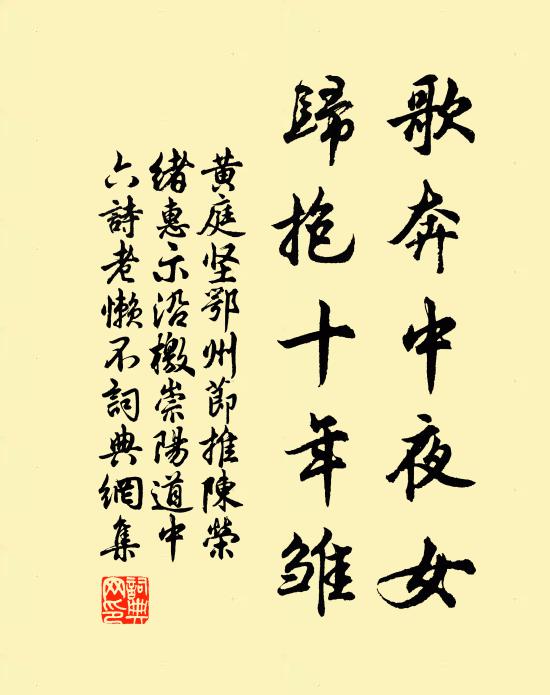 歌奔中夜女
歸抱十年雏
黄庭坚鄂州節推陳榮
緒惠示沿檄崇陽道中
六詩老懶不詞典網集